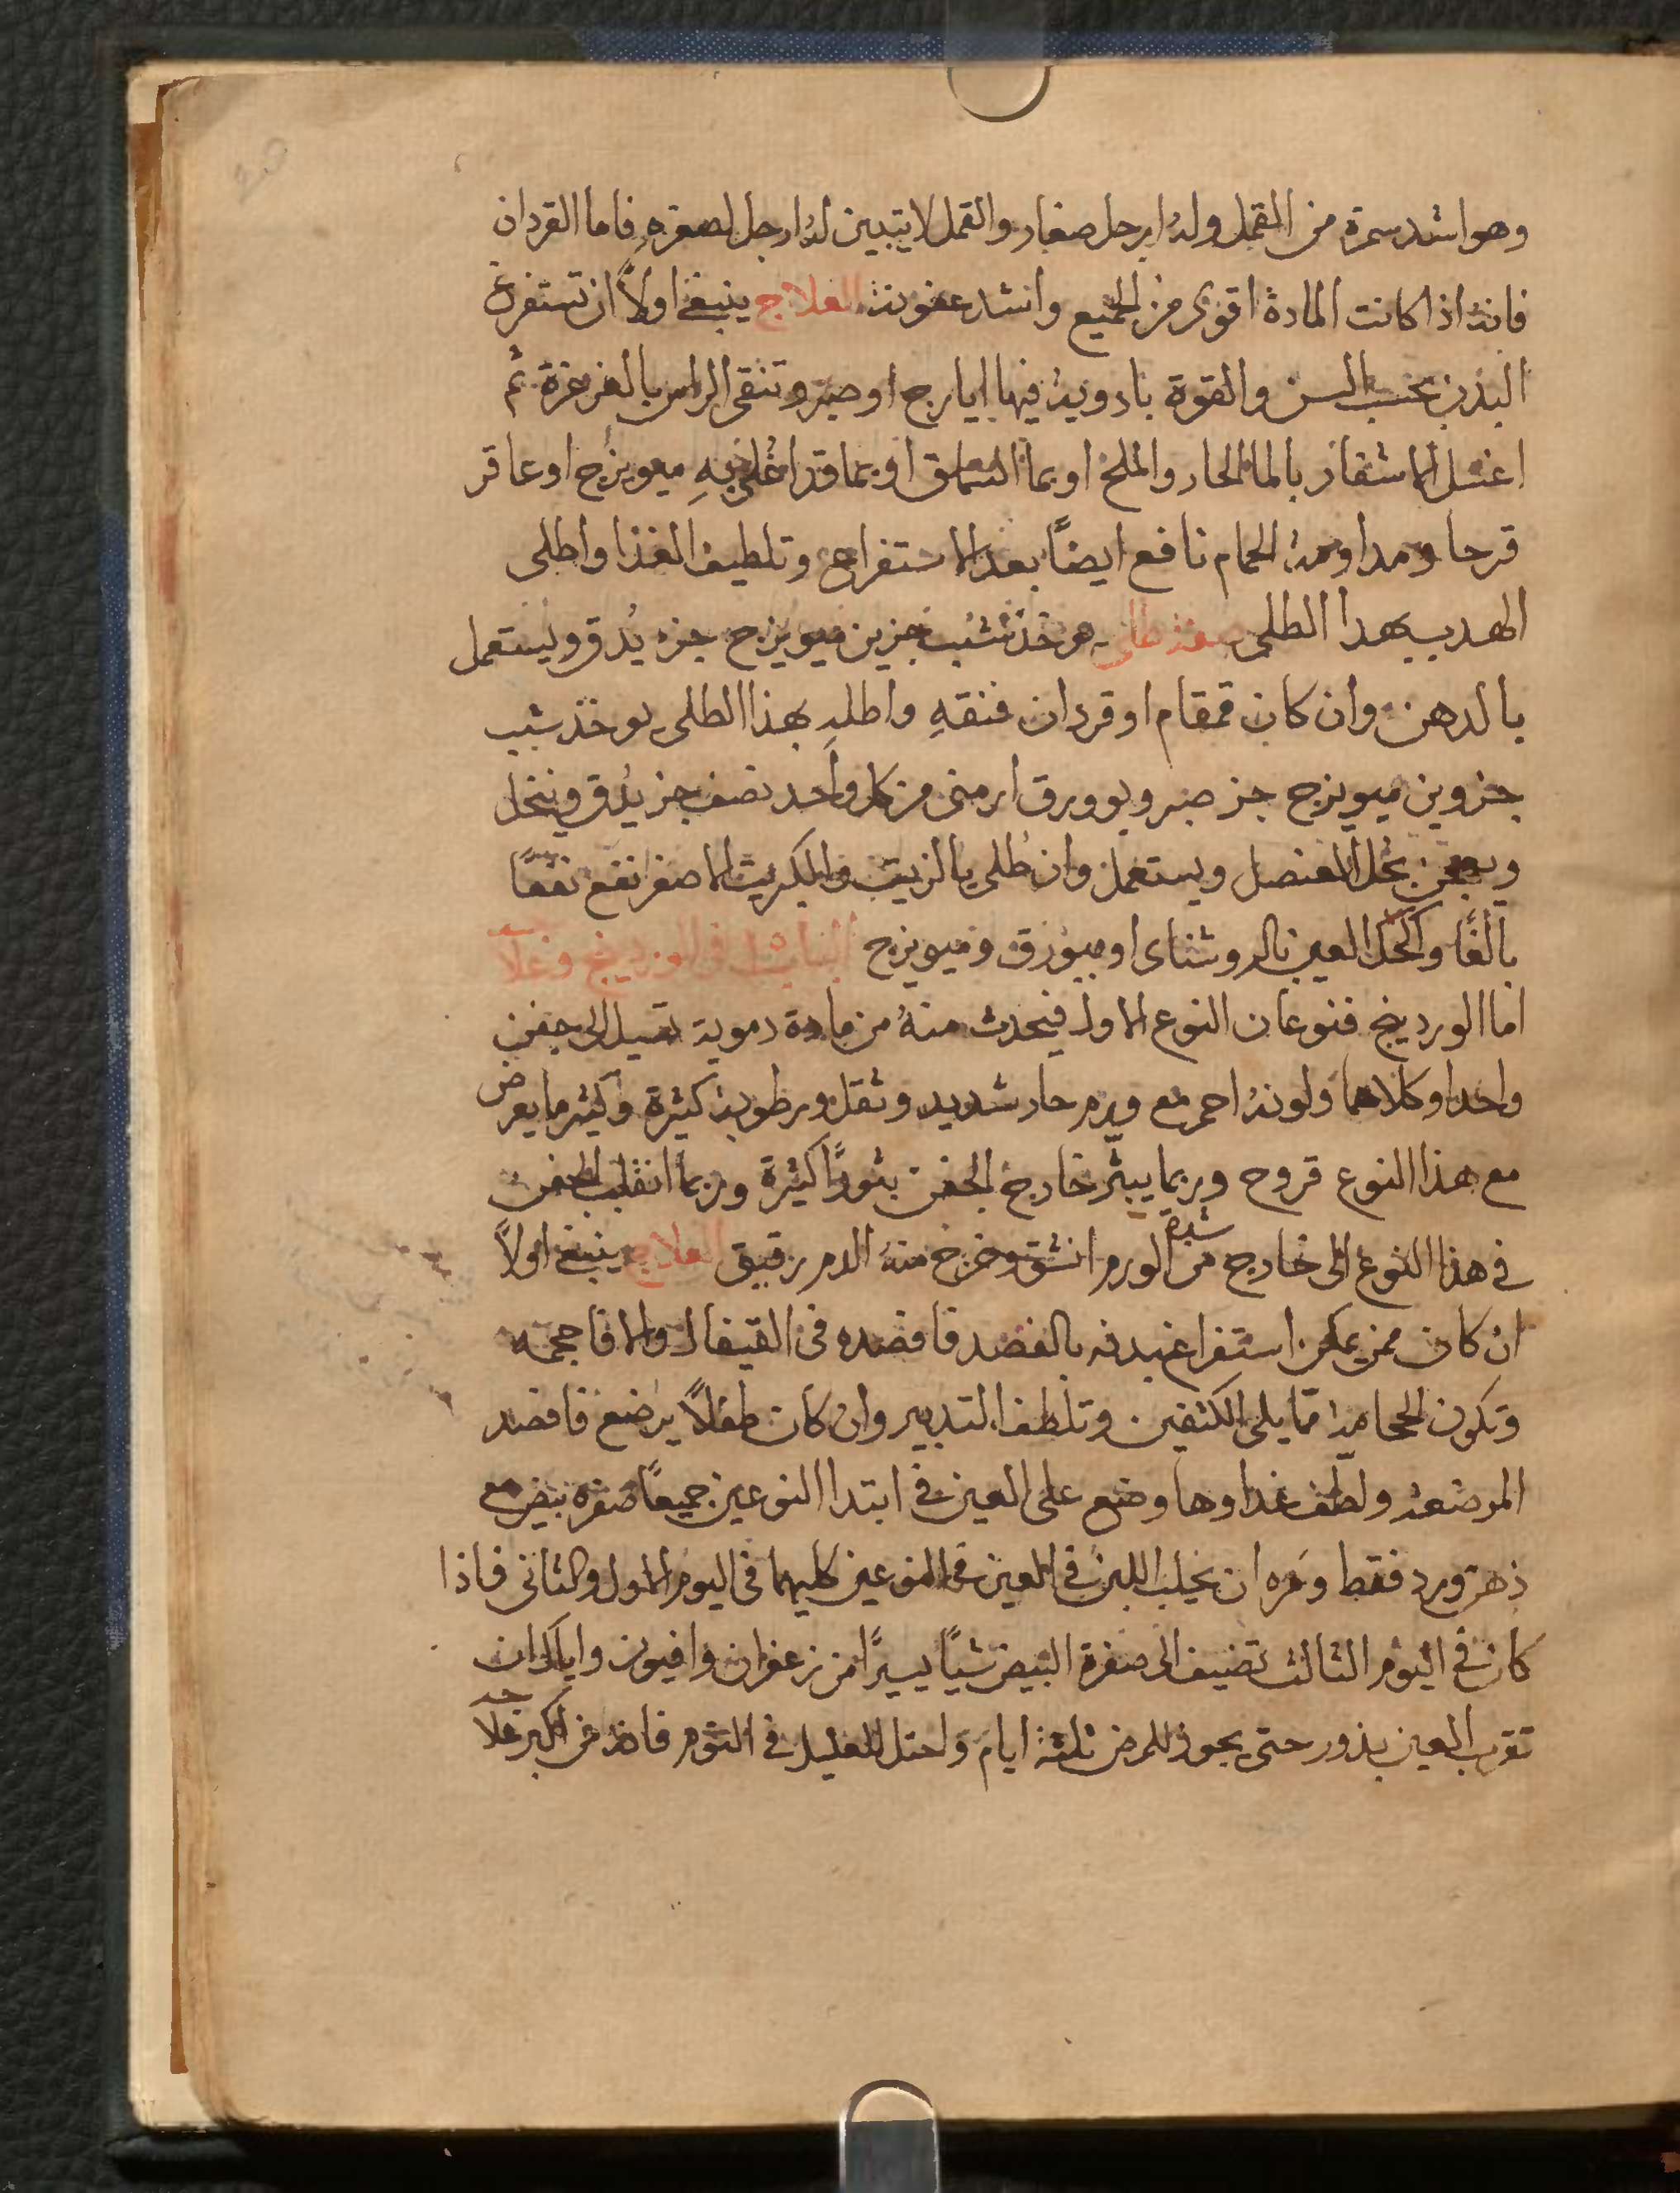 وهو اشد سمرة من القمل وله ارجل صغار والقمل لا يتبين له ارجل لصغره فاما القردان
فانه اذا كانت المادة اقوى من الجميع واشد عفونة العلاج ينبغي اولاً ان تستفرغ
البدن بحسب السن والقوة بادوية فيها ايارج او صبر وتنقى الراس بالغرغرة ثم
اغسل الاشفار بالما الحار والملح او بما السلق او بما قد اغلي فيه ميويزج او عاقر
قرحا ومداومة الحمام نافع ايضاً بعد الاستفراغ وتلطيف الغذا واطلى
الهدب بهذا الطلى صفة طلى يوخذ شب جزين ميويزج جزء يُدق ويستعمل
بالدهن وان كان قمقام او قردان فنقهِ واطلهِ بهذا الطلى يوخذ شب
جزوين ميويزج جز صبر وبوورق ارمنى من كل واحد نصف جز يُدق وينخل
ويعجن بخل العنصل ويستعمل وان طُلى بالزيت والكبريت الاصفر نفع نفعًا
بالغًا واكحل العين بالروشناى او ببورق وميويزج الباب فى الوردينج وعلا
جه
اما الوردينج فنوعان النوع الاول فيحدث منهُ من مادة دموية تسيل الى جفن
واحد او كلاهما ولونه احمر مع ورم حار شديد وثقل ورطوبة كثيرة واكثر ما يعرض
مع هذا النوع قروح وربما يبثّر خارج الجفن بثورًا كثيرة وربما انقلب الجفن
في هذا النوع الى خارج من شدة الورم انشق وخرج منه الدم رقيق العلاج ينبغي اولاً
ان كان ممن يمكن استفراغ بدنه بالفصد فافصده فى القيفال والا فاحجمه
وتكون الحجامة مما يلى الكتفين وتلطف التدبير وان كان طفلاً يرضع فافصد
المرضعة ولطف غداوها وضع على العين في ابتدا النوعين جميعًا صفرة بيض مع
دهن ورد فقط ومره ان يحلب اللبن في العين فى النوعين كليهما فى اليوم الاول والثانى فاذا
كان في اليوم الثالث تضيف الى صفرة البيض شيًا يسيرًا من زعفران وافيون واياك ان
تقرب العين بذرور حتى يجوز للمرض ثلثة ايام واحتل للعليل في النوم فانه من اكبر علا
جه